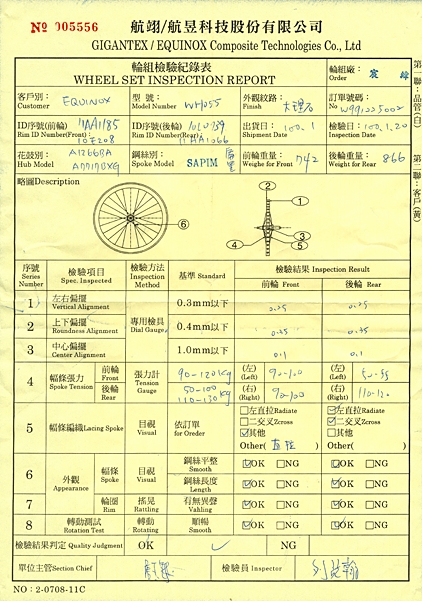 No 005556
航翊/航昱科技股份有限公司
GIGANTEX / EQUINOX Composite Technologies Co., Ltd
輪組檢驗紀錄表
WHEEL SET INSPECTION REPORT
輪組廠：
客戶別：
Customer EQUINOX
型號：
Model Number WH055
外觀紋路：
Finish 大理石
訂單號碼
No W991225002
ID序號(前輪)
Rim ID Number(Front)
ID序號(後輪)
Rim ID Number(Rear)
11AA1066
出貨日：100.1
檢驗日：100.1.20
Inspection Date
花鼓別：
Hub Model
鋼絲別：
Spoke Model SAPIM
前輪重量：
Weighe for Front 742
後輪重量：
Weight for Rear 866
略圖Description
⑥
②
①
④ ③
⑤
序號 Series Number
檢驗項目 Spec. Inspected
檢驗方法 Inspection Method
基準 Standard
檢驗結果 Inspection Result
前輪 Front
後輪 Rear
1 左右偏擺 Vertical Alignment 0.3mm以下 0.25 0.25
2 上下偏擺 Roundness Alignment 專用檢具 Dial Gauge 0.4mm以下
3 中心偏擺 Center Alignment 1.0mm以下 0.1 0.1
4 幅條張力 Spoke Tension
前輪 Front
後輪 Rear
張力計 Tension Gauge
90-120kg
50-100
110-130kg
(左) (Left) 90-100 (左) (Left)
(右) (Right) 90-100 (右) (Right) 110-120
5 幅條編織Lacing Spoke 目視 Visual 依訂單 for Oreder
□左直拉Radiate
□二交叉Zcross
☑其他
Other( )
左直拉Radiate
二交叉Zcross
□其他
Other( )
6 外觀 Appearance
幅條 Spoke 目視 Visual
鋼絲平整 Smooth ☑OK □NG ☑OK □NG
鋼絲長度 Length ☑OK □NG ☑OK □NG
7 輪圈 Rim 搖晃 Rattling 有無異聲 Vahling ☑OK □NG ☑OK □NG
8 轉動測試 Rotation Test 轉動 Rotating 順暢 Smooth ☑OK □NG ☑OK □NG
檢驗結果判定 Quality Judgment OK ✓ NG
單位主管Section Chief
檢驗員 Inspector
NO：2-0708-11C